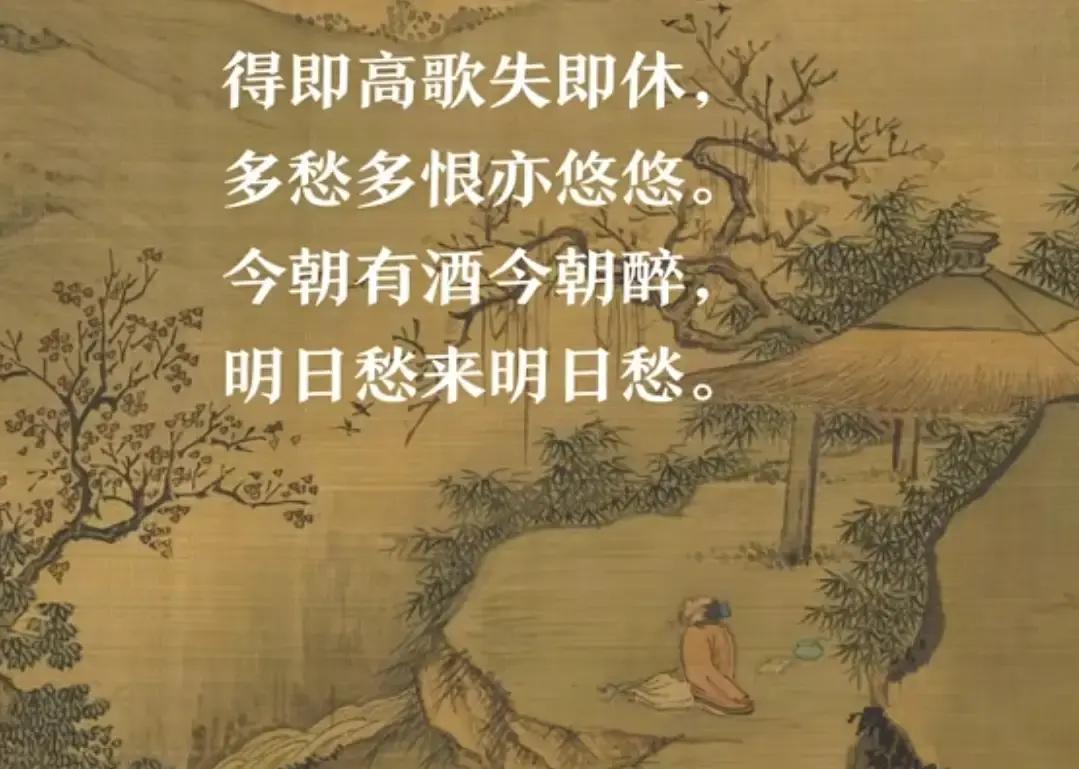 得即高歌失即休，
多愁多恨亦悠悠。
今朝有酒今朝醉，
明日愁来明日愁。